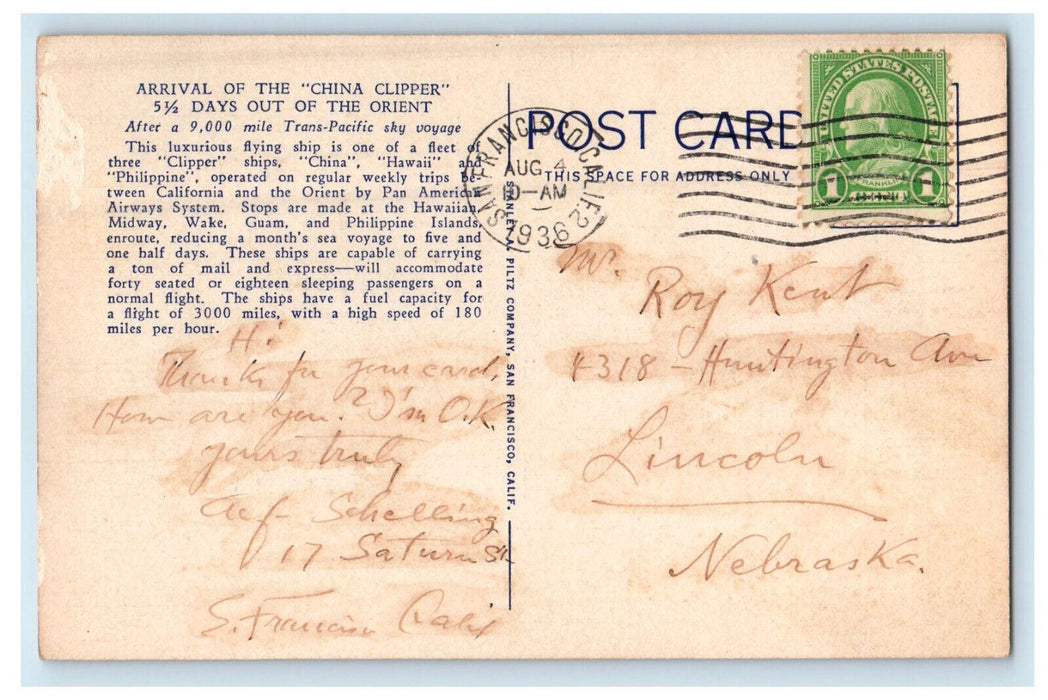 ARRIVAL OF THE "CHINA CLIPPER"
5½ DAYS OUT OF THE ORIENT
After a 9,000 mile Trans-Pacific sky voyage
This luxurious flying ship is one of a fleet of
three "Clipper" ships, "China", "Hawaii" and
"Philippine", operated on regular weekly trips be-
tween California and the Orient by Pan American
Airways System. Stops are made at the Hawaiian,
Midway, Wake, Guam, and Philippine Islands,
enroute, reducing a month's sea voyage to five and
one half days. These ships are capable of carrying
a ton of mail and express—will accommodate
forty seated or eighteen sleeping passengers on a
normal flight. The ships have a fuel capacity for
a flight of 3000 miles, with a high speed of 180
miles per hour.
Hi
Thanks for your card,
How are you? I'm O.K.
yours truly
Schelling
17 Saturn St.
S. Francisco Calif
STANLEY A. PILTZ COMPANY, SAN FRANCISCO, CALIF.
POST CARD
THIS SPACE FOR ADDRESS ONLY
SAN FRANCISCO, CALIF. 2
AUG 4
-AM
1936
UNITED STATES POSTAGE
FRANKLIN
1 1
Mr.
Roy Kent
4318 - Huntington Ave
Lincoln
Nebraska.